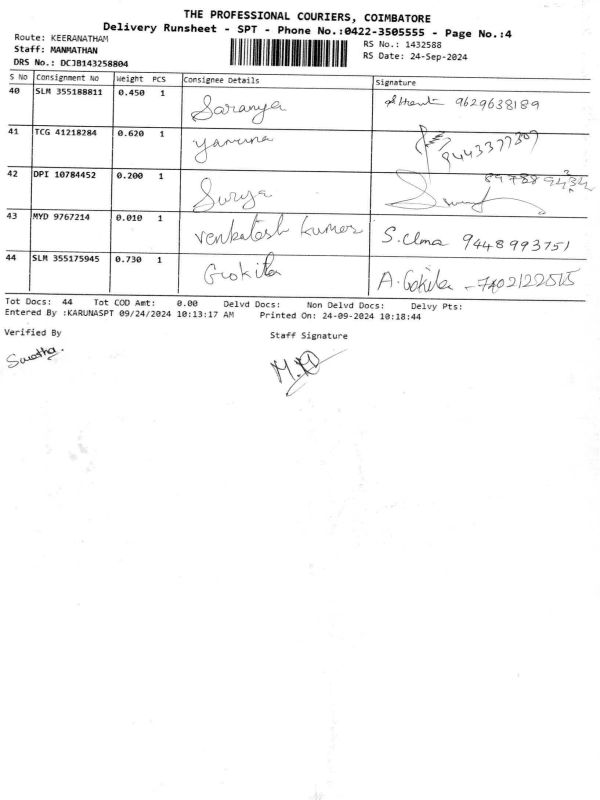 THE PROFESSIONAL COURIERS, COIMBATORE
Delivery Runsheet - SPT - Phone No.:0422-3505555 - Page No.:4
Route: KEERANATHAM
RS No.: 1432588
Staff: MANMATHAN
RS Date: 24-Sep-2024
DRS No.: DCJB143258804
S No Consignment No Weight PCS Consignee Details Signature
40 SLM 355188811 0.450 1 Saranya 9629638189
41 TCG 41218284 0.620 1 Yamuna
42 DPI 10784452 0.200 1 Surya
43 MYD 9767214 0.010 1 Venkatesh Kumar S. Uma 9448993751
44 SLM 355175945 0.730 1 Gokila A. Gokila -
Tot Docs: 44 Tot COD Amt: 0.00 Delvd Docs: Non Delvd Docs: Delvy Pts:
Entered By :KARUNASPT 09/24/2024 10:13:17 AM Printed On: 24-09-2024 10:18:44
Verified By Staff Signature